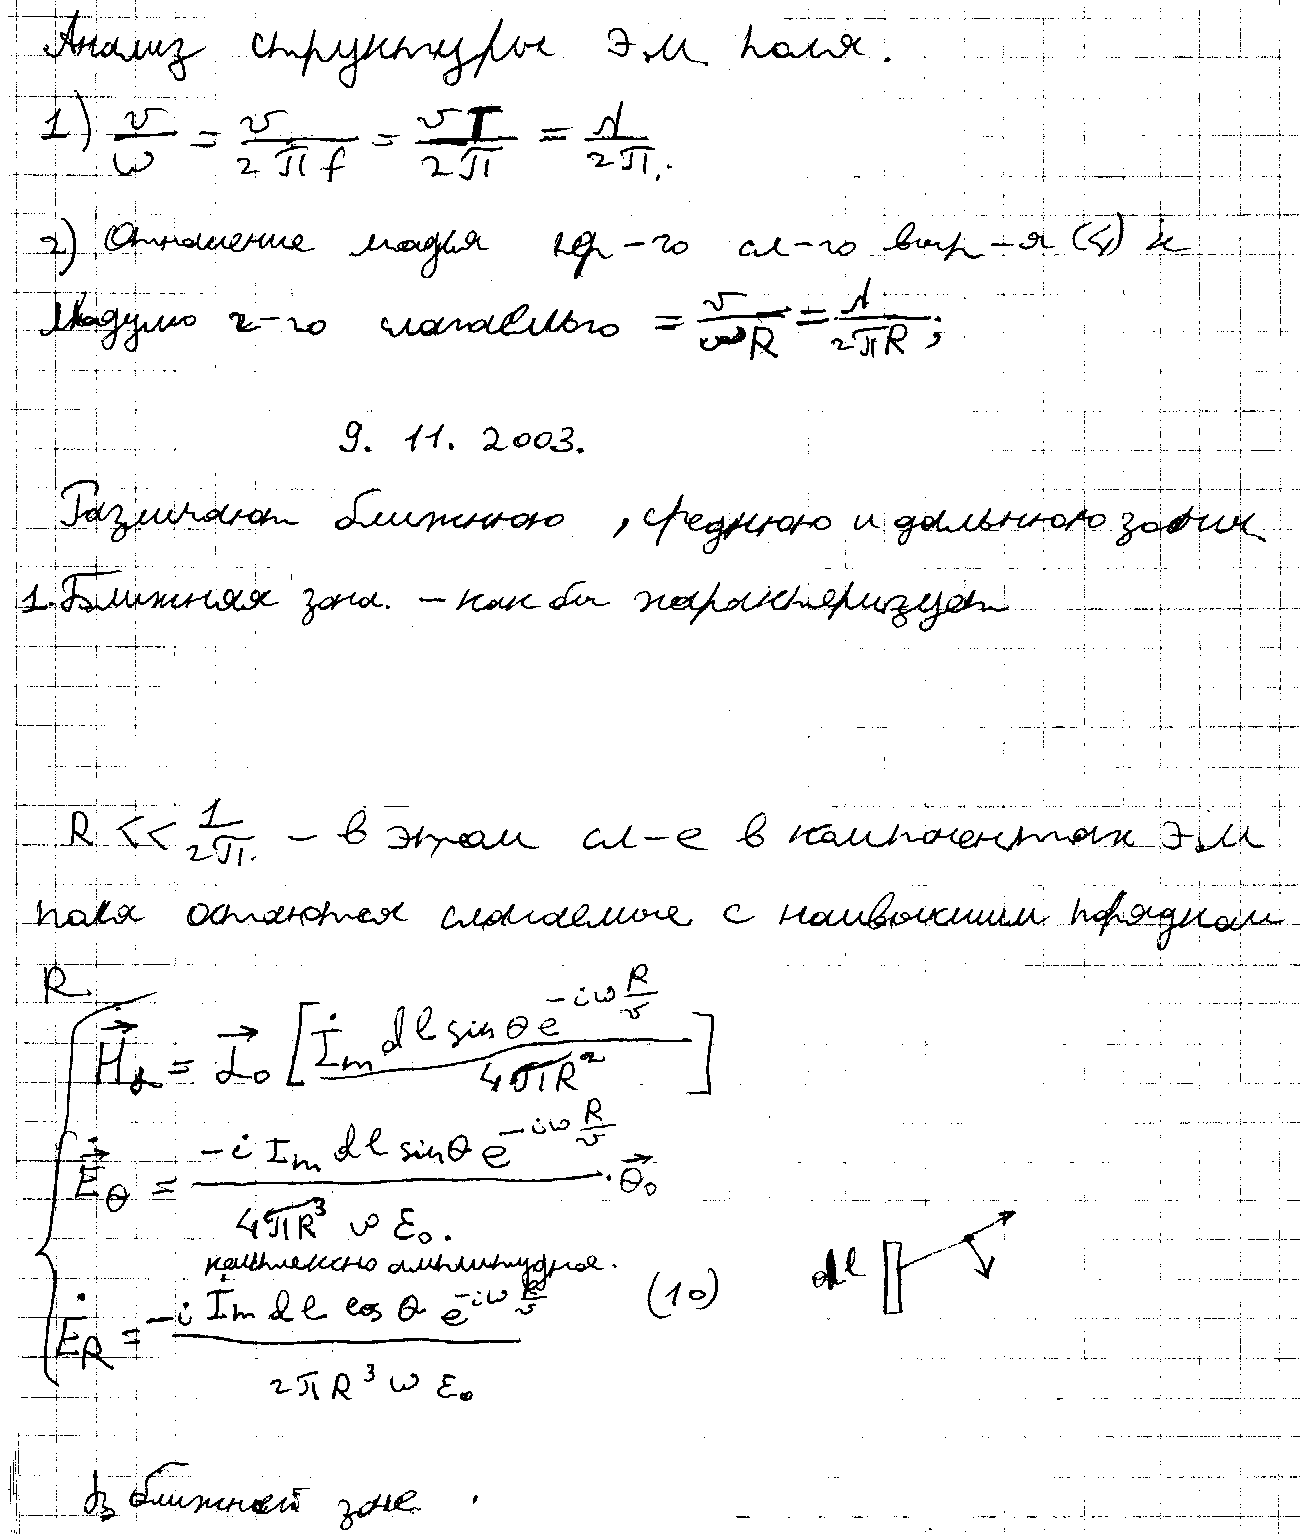 Анализ структуры ЭМ поля.
1) v/ω = v/2πf = vT/2π = λ/2π.
2) Отношение модуля пер-го сл-го выр-я (4) к
модулю 2-го слагаемого = v/ωR = λ/2πR;
9. 11. 2003.
Различают ближнюю, среднюю и дальнюю зоны
1. Ближняя зона. – как бы характеризует
R << 1/2π. – в этом сл-е в компонентах ЭМ
поля остаются слагаемые с наивысшим порядком
R.
H⃗̇α = α⃗₀ [İm dl sinθ e^(-iωR/v) / 4πR²]
E⃗̇θ = -i Im dl sinθ e^(-iωR/v) / 4πR³ωε₀ · θ⃗₀
комплексно амплитудное.
ĖR = -i İm dl cosθ e^(-iωR/v) / 2πR³ωε₀ (10) dl
В ближней зоне.